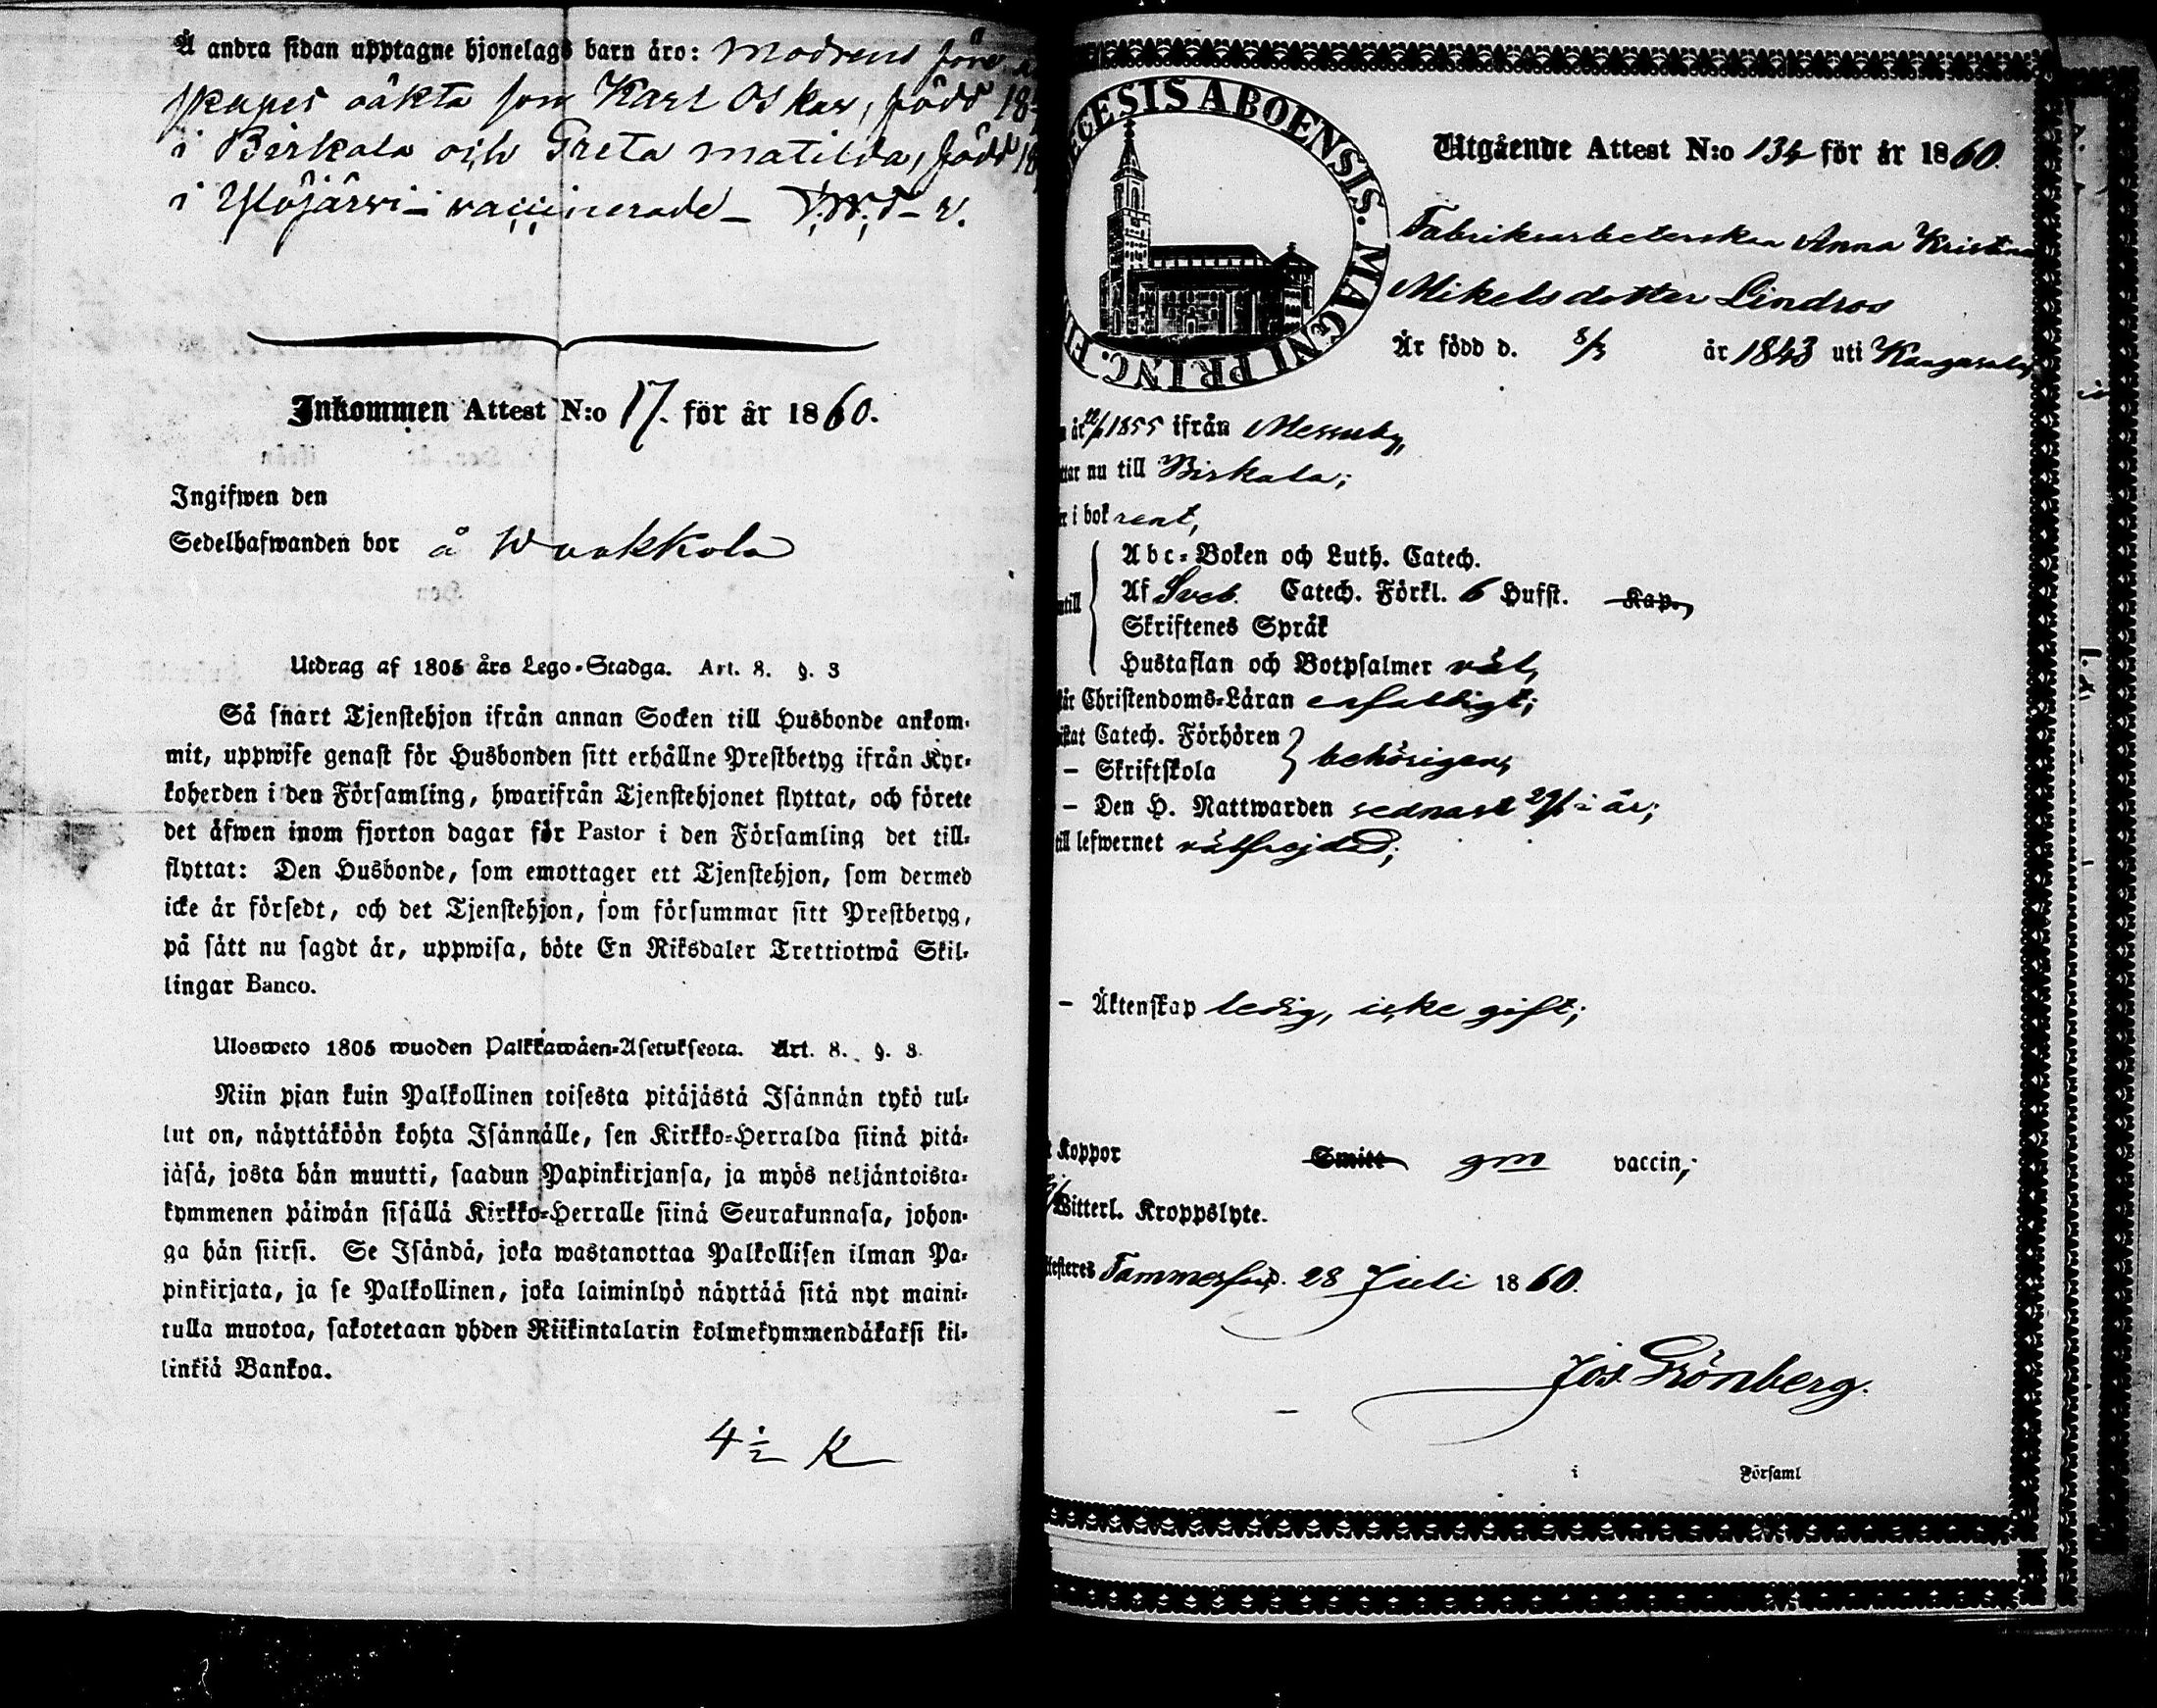 Å andra sidan upptagne hjonelags barn äro: modrens före
skapes oäkta son Karl Oskar, född 18
i Birkala och Greta Matilda, född 18
i Ylöjärwi – vaccinerade –
Inkommen Attest N:o 17. för år 1860.
Ingifwen den
Sedelhafwanden bor å
Utdrag af 1805 års Lego-Stadga. Art. 8. §. 3
Så snart Tjenstehjon ifrån annan Socken till Husbonde ankom-
mit, uppwise genast för Husbonden sitt erhållne Prestbetyg ifrån Kyr-
koherden i den Församling, hwarifrån Tjenstehjonet flyttat, och förete
det äfwen inom fjorton dagar för Pastor i den Församling det till-
flyttat: Den Husbonde, som emottager ett Tjenstehjon, som dermed
icke är försedt, och det Tjenstehjon, som försummar sitt Prestbetyg,
på sätt nu sagdt är, uppwisa, böte En Riksdaler Trettiotwå Skil-
lingar Banco.
Ulosweto 1805 wuoden Palkkawäen-Asetuksesta. Art. 8. §. 3.
Niin pjan kuin Palkollinen toisesta pitäjästä Isännän tykö tul-
lut on, näyttäköön kohta Isännälle, sen Kirkko-Herralda siinä pitä-
jäsä, josta hän muutti, saadun Papinkirjansa, ja myös neljäntoista-
kymmenen päiwän sisällä Kirkko-Herralle siinä Seurakunnasa, johon-
ga hän siirsi. Se Isändä, joka wastanottaa Palkollisen ilman Pa-
pinkirjata, ja se Palkollinen, joka laiminlyö näyttää sitä nyt maini-
tulla muotoa, sakotetaan yhden Riikintalarin kolmekymmendäkaksi kil-
linkiä Bankoa.
4 1/2 K
ECESIS ABOENSIS. MAGNI PRINC. FI
Utgående Attest N:o 134 för år 1860.
Fabriksarbeterskan Anna Kristina
Mikelsdotter Lindros
Är född d. år 1843 uti Kangasala,
år 1855 ifrån Messuby,
ttar nu till Birkala;
r i bok rent,
Abc-Boken och Luth. Catech.
ntill Af Sveb. Catech. Förkl. 6 Hufst. Kap.,
Skriftenes Språk
Hustaflan och Botpsalmer väl,
tår Christendoms-Läran enfaldigt;
istat Catech. Förhören
– Skriftskola behörigen,
– Den H. Nattwarden sednast i år;
till lefwernet välfrejdad;
– Äktenskap ledig, icke gift;
t Koppor Smitt gm vaccin,;
Witterl. Kroppslyte.
ttesteres Tammerfors d. 28 Juli 1860.
Jos. Grönberg.
i Församl